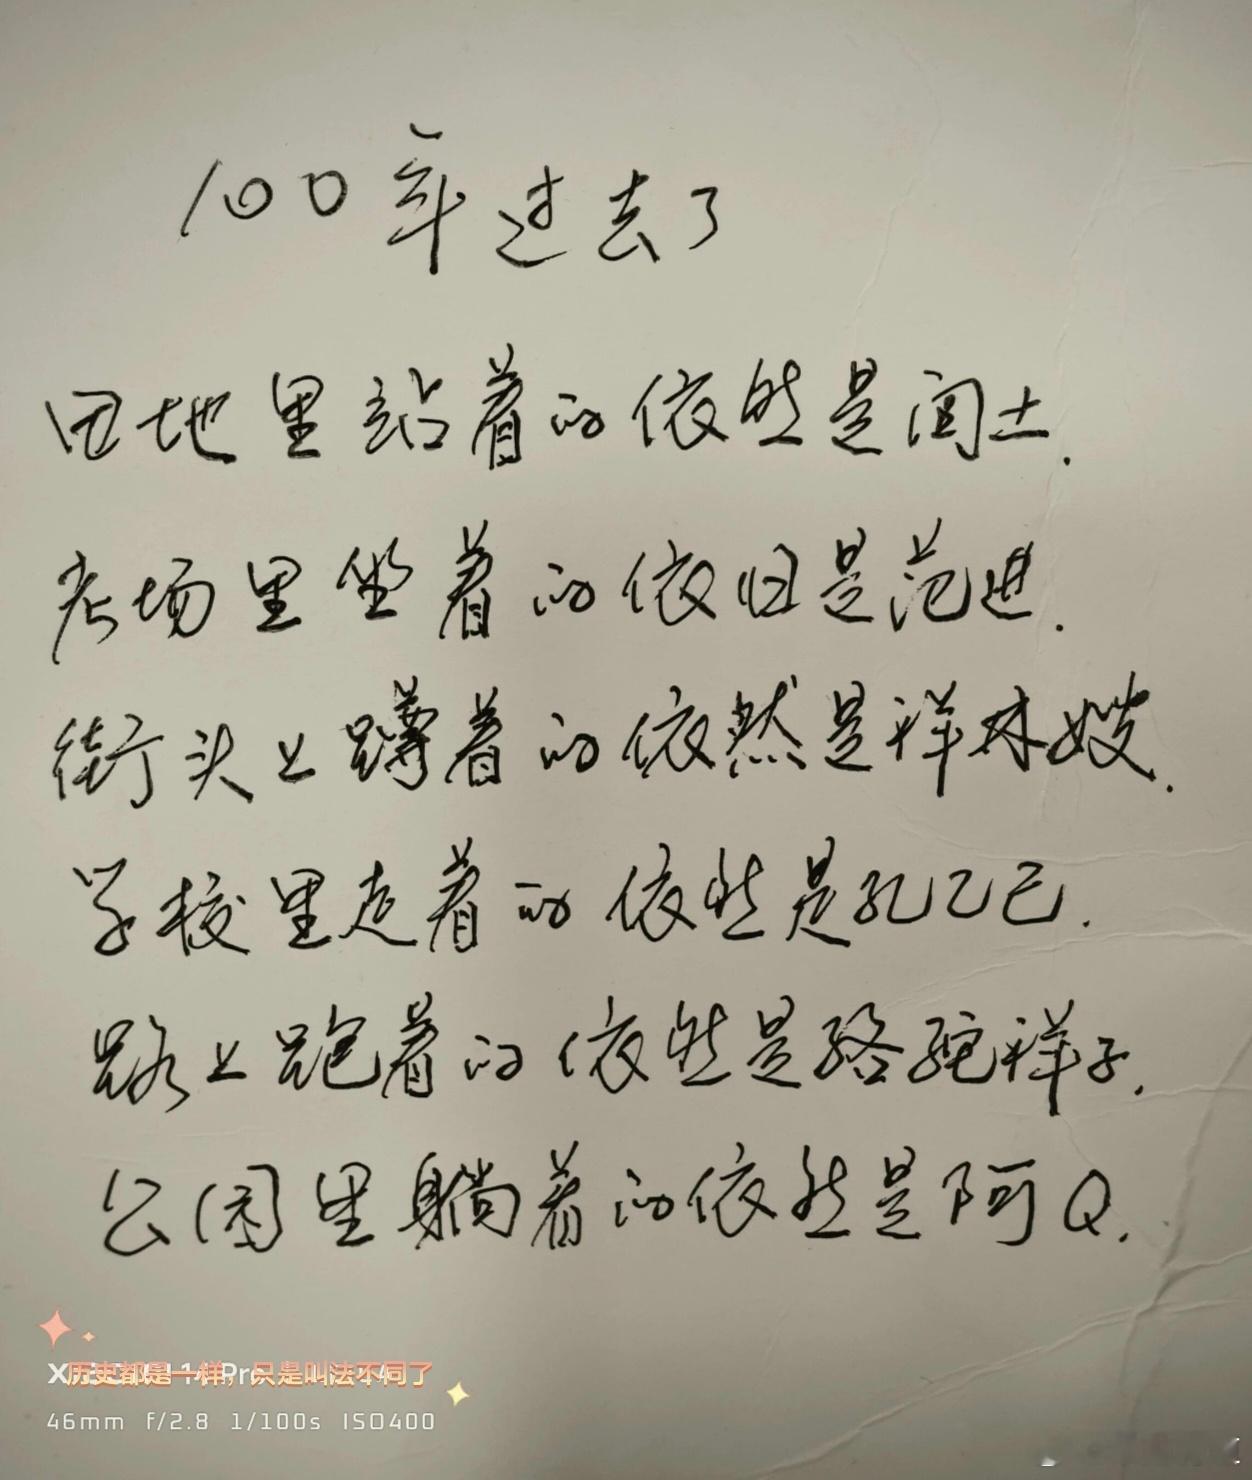 100年过去了
田地里站着的依然是闰土.
考场里坐着的依旧是范进.
街头上蹲着的依然是祥林嫂.
学校里走着的依然是孔乙己.
路上跑着的依然是骆驼祥子.
公园里躺着的依然是阿Q.
历史都是一样，只是叫法不同了
46mm f/2.8 1/100s ISO400